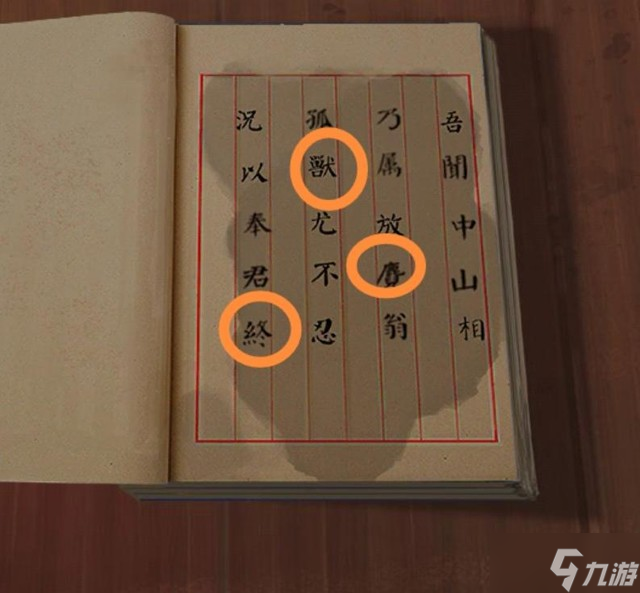 吾聞中山相
乃属放翁
孤獸尤不忍
況以奉君終
九游